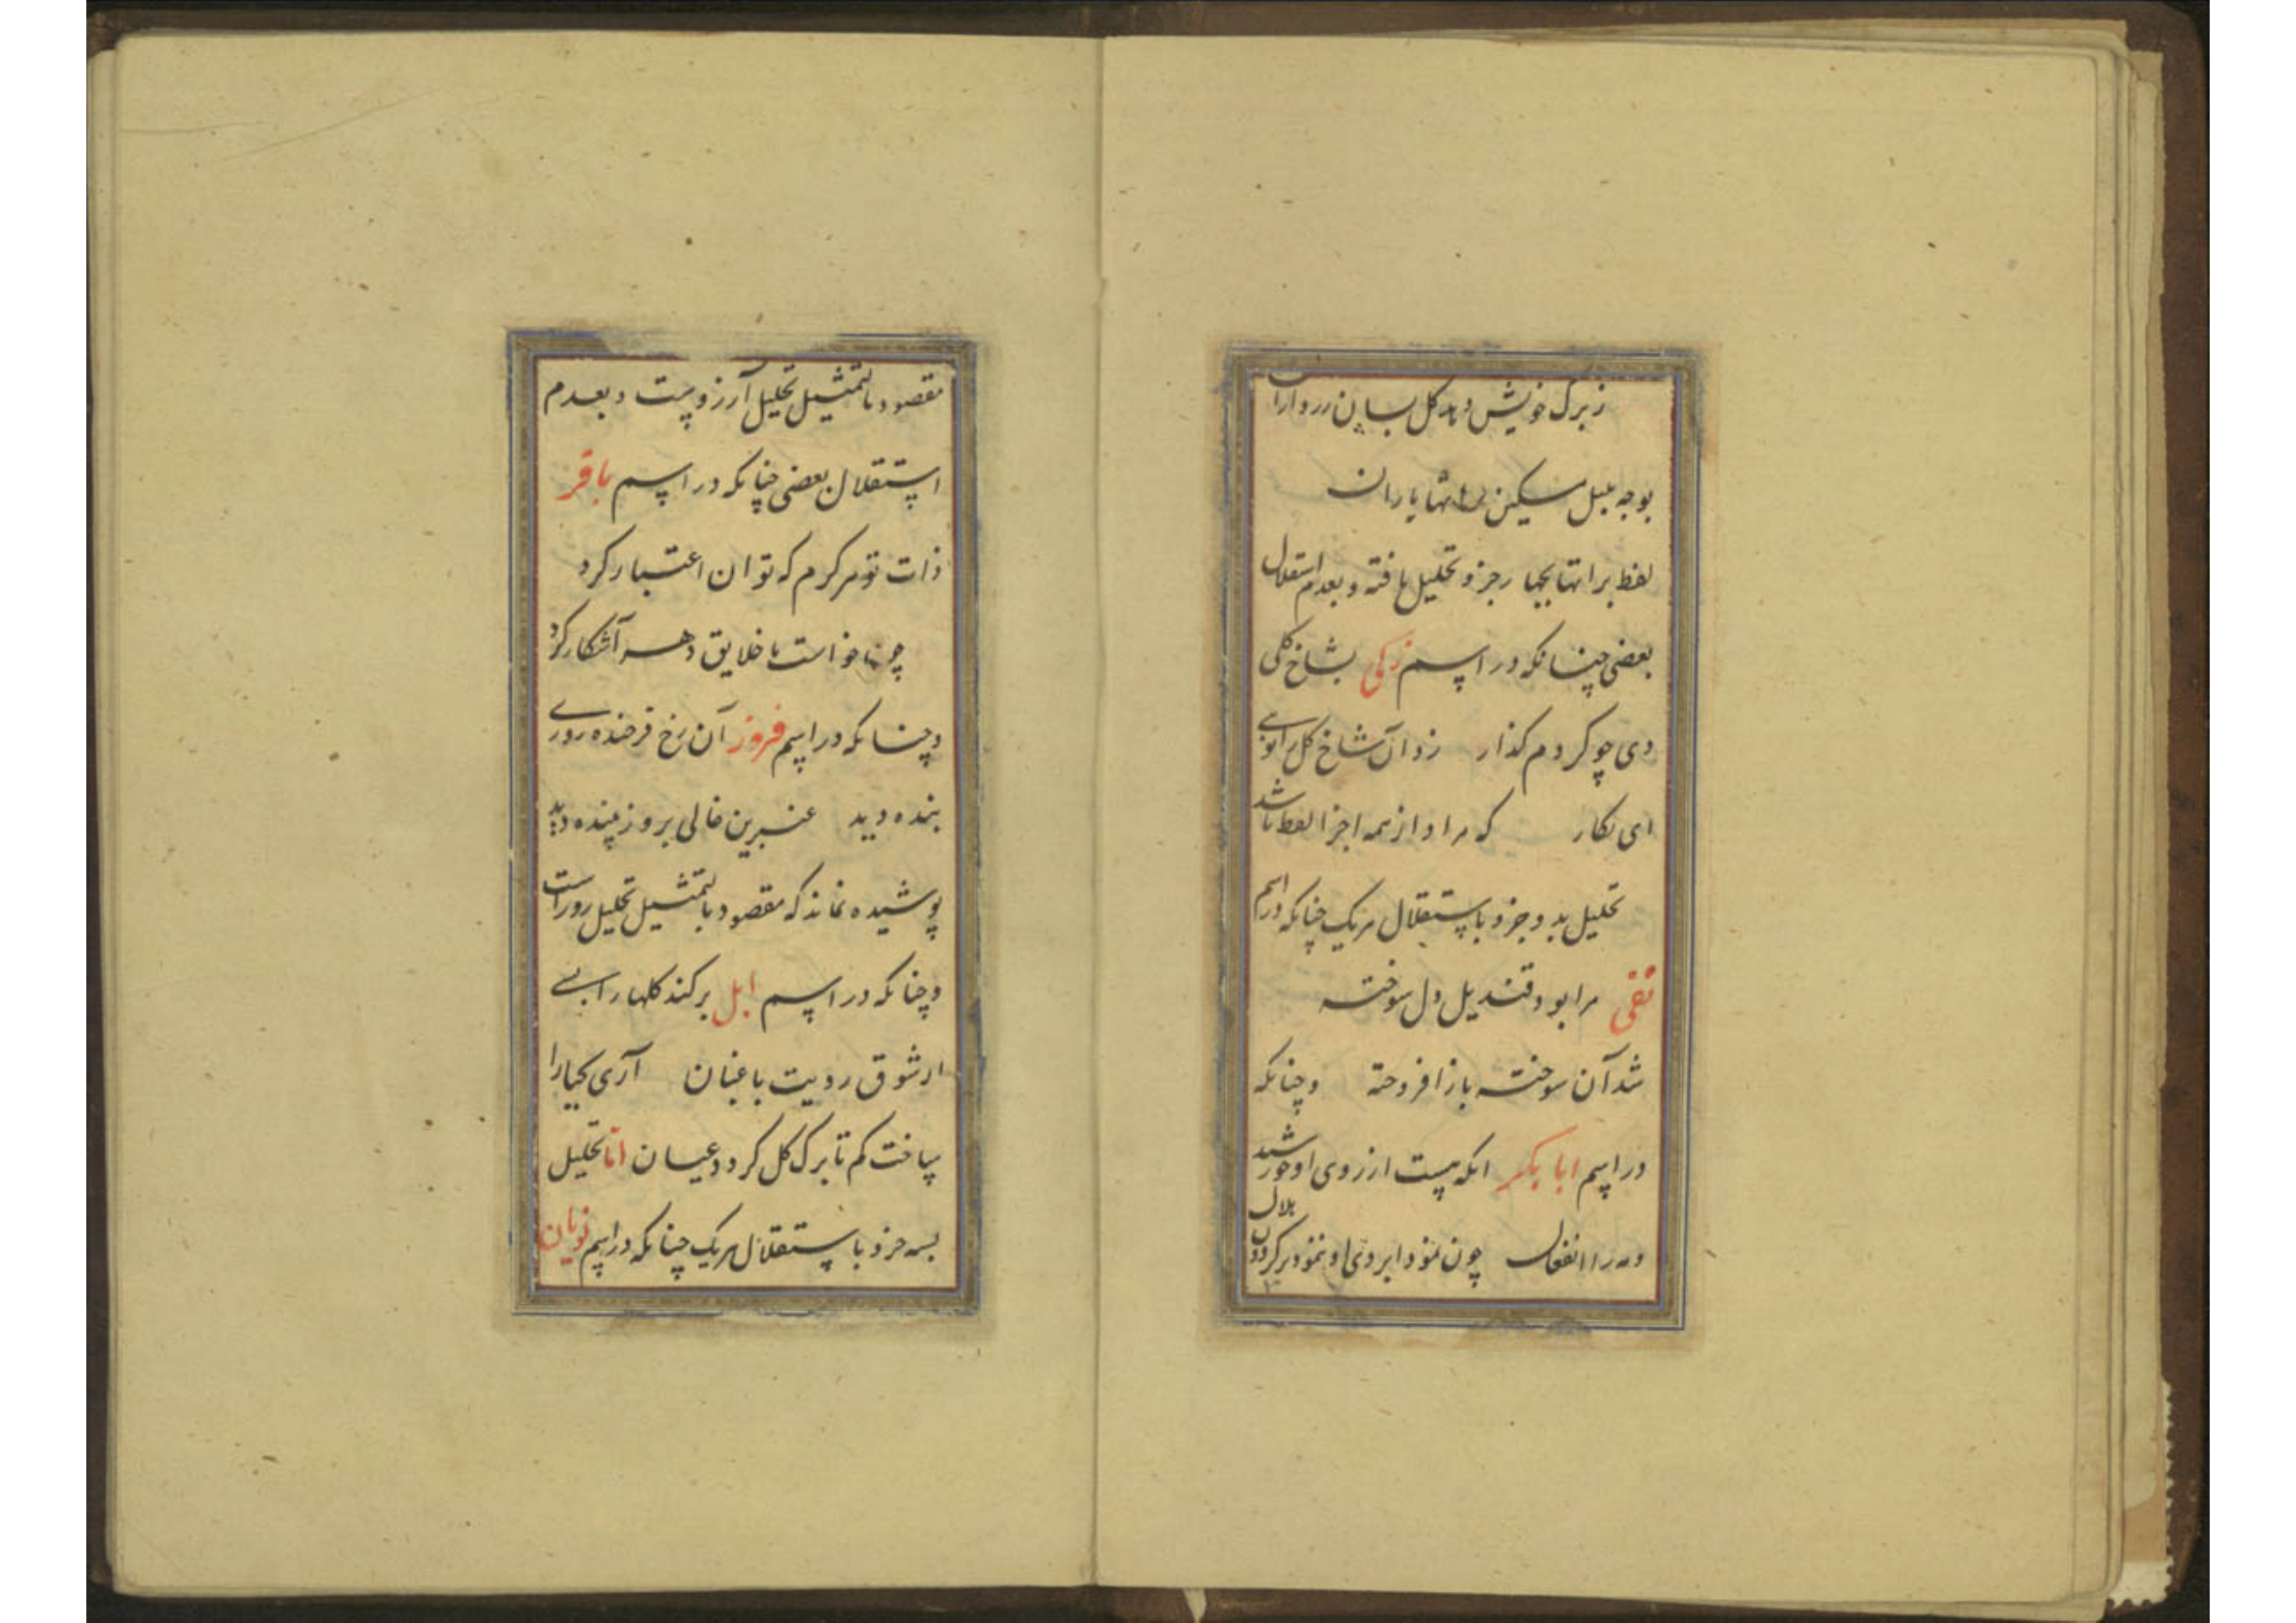 ز برگ خویش دهد گل بسان زرداران
بوجه بلبل مسکین برانتها یاران
لفظ برانتها بچهار جزو تحلیل یافته و بعدم استقلال
بعضی چنانکه در اسم زکی بشاخ گلی
دی چو کردم گذار زدوان شاخ گل را
ای نگار که مراد از همه اجزا لفظ باشد
تحلیل بدو جزو باستقلال هریک چنانکه در اسم
تقی مرا بود قندیل دل سوخته
شد آن سوخته باز افروخته وچنانکه
در اسم ابا بکر انکه هست از روی او خورشید
ومه را انفعال چون نمود ابروی او ننمود بر گردون هلال
مقصود بالتمثیل تحلیل آرزوست و بعدم
استقلال بعضی چنانکه در اسم باقر
ذات تو هر کرم که توان اعتبار کرد
چونها خواست با خلایق دهر آشکار کرد
وچنانکه در اسم فروز آن رخ فرخنده روزی
بنده دید عنبرین خالی بروز بنده دید
پوشیده نماند که مقصود بالتمثیل تحلیل روز است
وچنانکه در اسم ابل برکند گلها را بسی
از شوق رویت باغبان آری گیا را
ساخت کم تا برگ گل کردد عیان اما تحلیل
بسه جزو باستقلال هریک چنانکه در اسم نویان